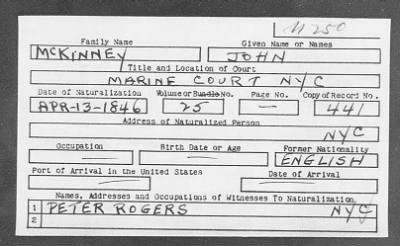 M 250
Family Name Given Name or Names
MCKINNEY JOHN
Title and Location of Court
MARINE COURT NYC
Date of Naturalization Volume or Bundle No. Page No. Copy of Record No.
APR-13-1846 25 — 441
Address of Naturalized Person
NYC
Occupation Birth Date or Age Former Nationality
— — ENGLISH
Port of Arrival in the United States Date of Arrival
— —
Names, Addresses and Occupations of Witnesses To Naturalization
1 PETER ROGERS NYC
2